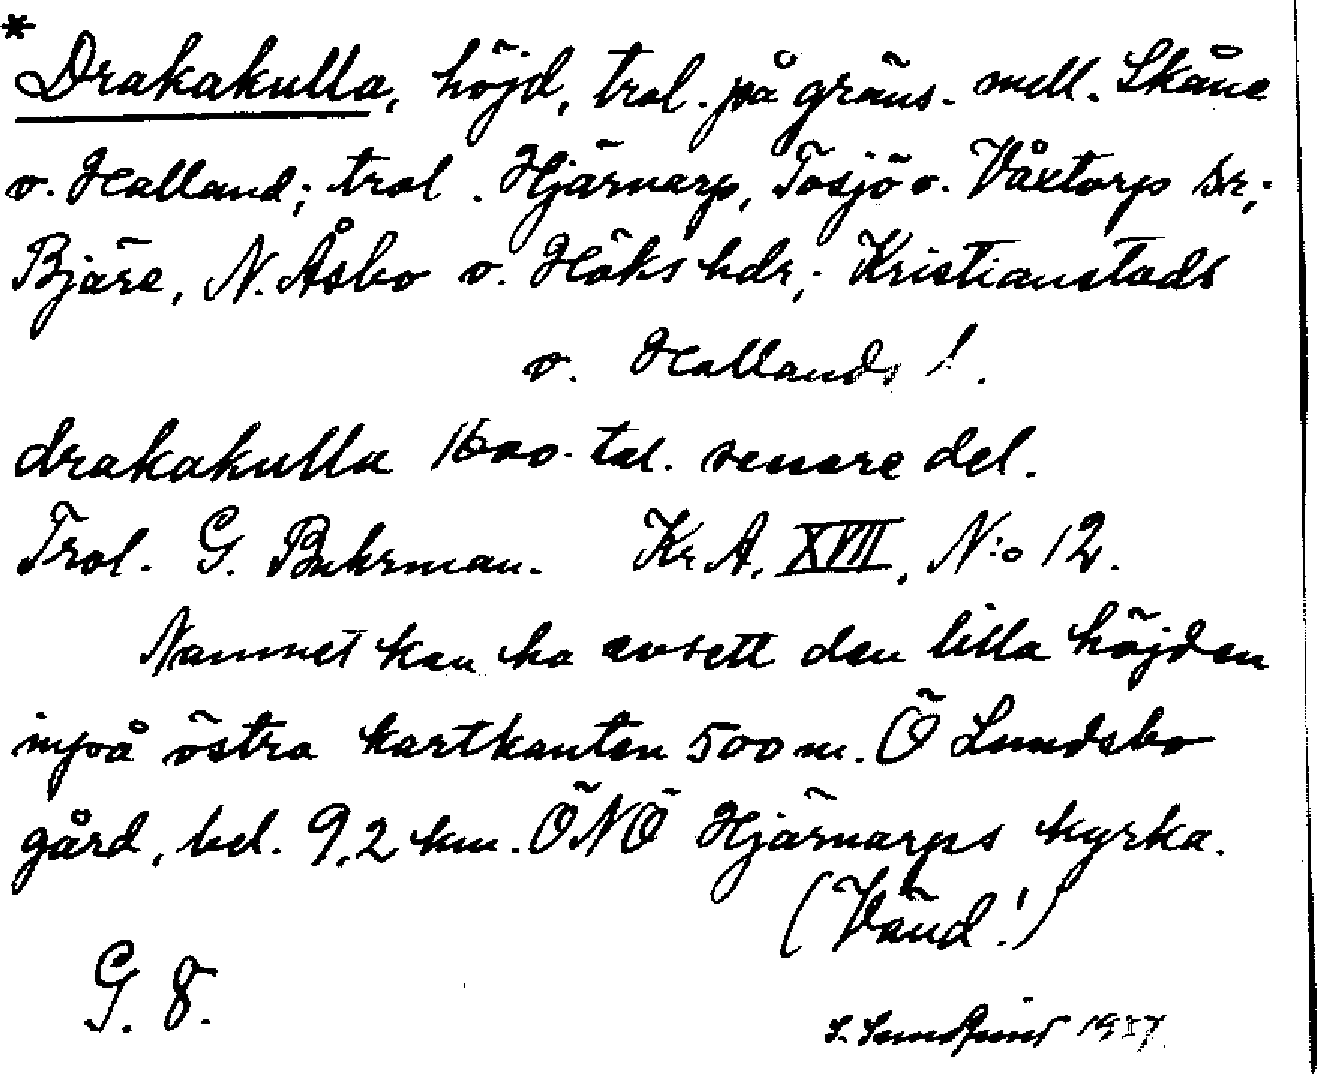 *
Drakakulla, höjd, trol. på gräns. mell. Skåne
o. Halland; trol. Hjärnarp, Tosjö o. Våxtorp sr;
Bjäre, N. Åsbo o. Höks hdr; Kristianstads
o. Hallands l.
drakakulla 1600-tal. senare del.
Trol. G. Buhrman. Kr. A. XVII, N:o 12.
Namnet kan ha avsett den lilla höjden
inpå östra kartkanten 500 m. Ö Lundsbo
gård, bel. 9,2 km. ÖNÖ Hjärnarps kyrka.
(Vänd!)
G. 8.
1937